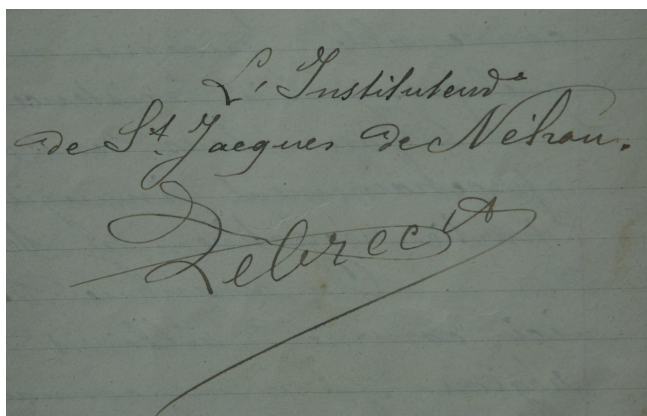 L'Instituteur
de St Jacques de Néhou.
Lebrec